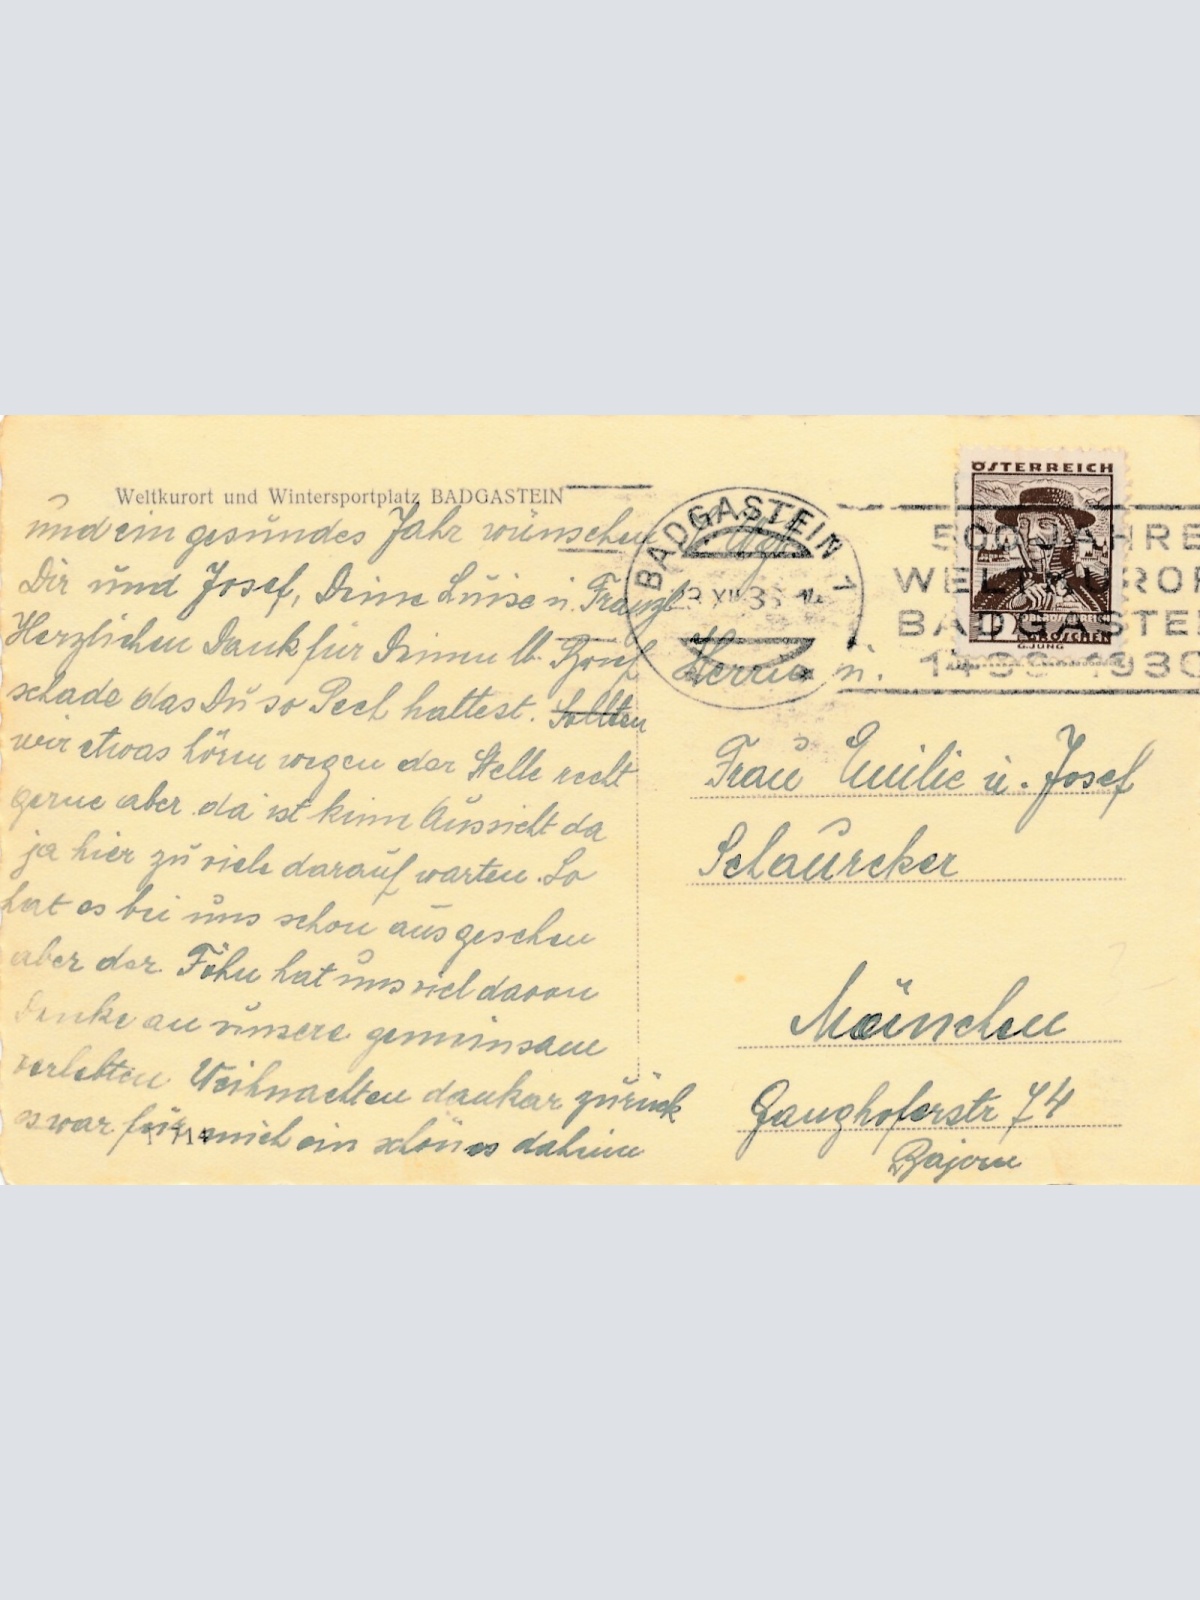 Weltkurort und Wintersportplatz BADGASTEIN
und ein gesundes Jahr wünschen
Dir und Josef, Deine Luise u. Franzl
Herzlichen Dank für Deinen lb. Brief
schade das Du so Pech hattest. Sollten
wir etwas hören wegen der Stelle recht
gerne aber da ist keine Aussicht da
ja hier zu viele darauf warten. So
hat es bei uns schon ausgesehen
aber der Föhn hat uns viel davon
Denke an unsere gemeinsam
verlebten Weihnachten dankar zurück
es war für mich ein schönes daheim
BADGASTEIN 1
XII 36
ÖSTERREICH
12
OBERÖSTERREICH
GROSCHEN
G. JUNG
500 JAHRE
WELTKUROR
BADGASTEI
1436-1936
Herrn u.
Frau Emilie u. Josef
Schaurcker
München
Ganghoferstr 74
Bajern